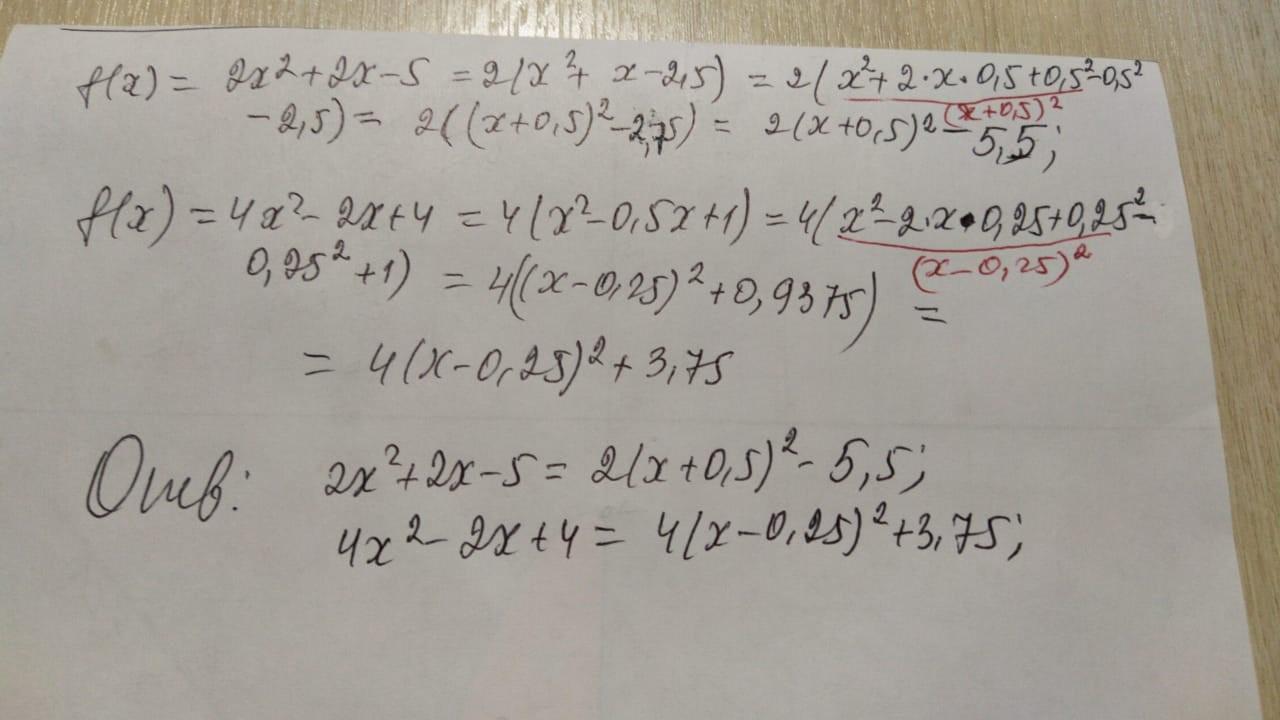 f(x) = 2x²+2x-5 = 2(x²+ x-2,5) = 2(x²+2·x·0,5+0,5²-0,5²
(x+0,5)²
-2,5) = 2((x+0,5)²-2,75) = 2(x+0,5)²-5,5;
f(x) = 4x²-2x+4 = 4(x²-0,5x+1) = 4(x²-2·x·0,25+0,25²-
(x-0,25)²
0,25²+1) = 4((x-0,25)²+0,9375) =
= 4(x-0,25)²+3,75
Ответ: 2x²+2x-5 = 2(x+0,5)²-5,5;
4x²-2x+4 = 4(x-0,25)²+3,75;